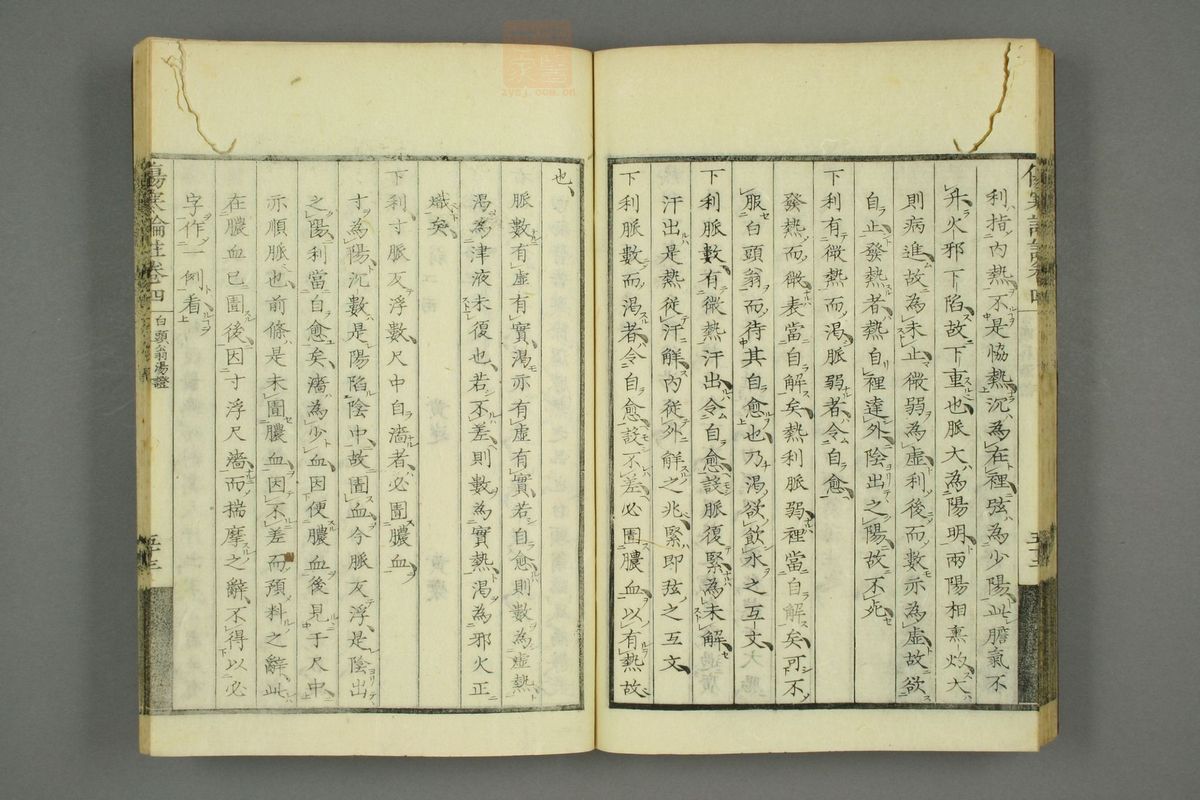 利指內熱不是恊熱沉為在裡弦為少陽此膽氣不
升火邪下陷故下重也脈大為陽明兩陽相熏灼大
則病進故為未止微弱為虛利後而數亦為虛故欲
自止發熱者熱自裡達外陰出之陽故不死
下利有微熱而渴脈弱者令自愈
發熱而微表當自解矣熱利脈弱裡當自解矣可不
服白頭翁而待其自愈也乃渴欲飲水之互文
下利脈數有微熱汗出令自愈設脈復緊為未解
汗出是熱從汗解內從外解之兆緊即弦之互文
下利脈數而渴者令自愈設不差必圊膿血以有熱故
也
脈數有虛有實渴亦有虛有實若自愈則數為虛熱
渴為津液未復也若不差則數為實熱渴為邪火正
熾矣
下利寸脈反浮數尺中自濇者必圊膿血
寸為陽沉數是陽陷陰中故圊血今脈反浮是陰出
之陽利當自愈矣濇為少血因便膿血後見于尺中
亦順脈也前條是未圊膿血因不差而預料之辭此
在膿血已圊後因寸浮尺濇而揣摩之辭不得以必
字作一例看
傷寒論註卷四 白頭翁湯證 五十三
zysj.com.cn